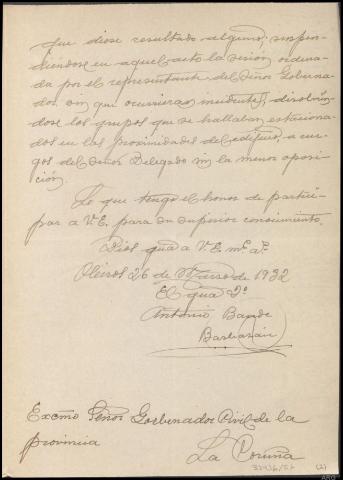 que diese resultado alguno, suspen-
diéndose en aquel acto la sesión ordena-
da por el representante del Señor Goberna-
dor sin que ocurrieran incidentes, disolvién-
dose los grupos que se hallaban estaciona-
dos en las proximidades del edificio, a rue-
gos del Señor Delegado sin la menor oposi-
ción.
Lo que tengo el honor de partici-
par a V. E. para su superior conocimiento.
Dios gua a V. E. ms. as.
Oleiros 26 de de 1932
El gua 2º
Antonio
Excmo Señor Gobernador Civil de la
provincia
La Coruña
(2)